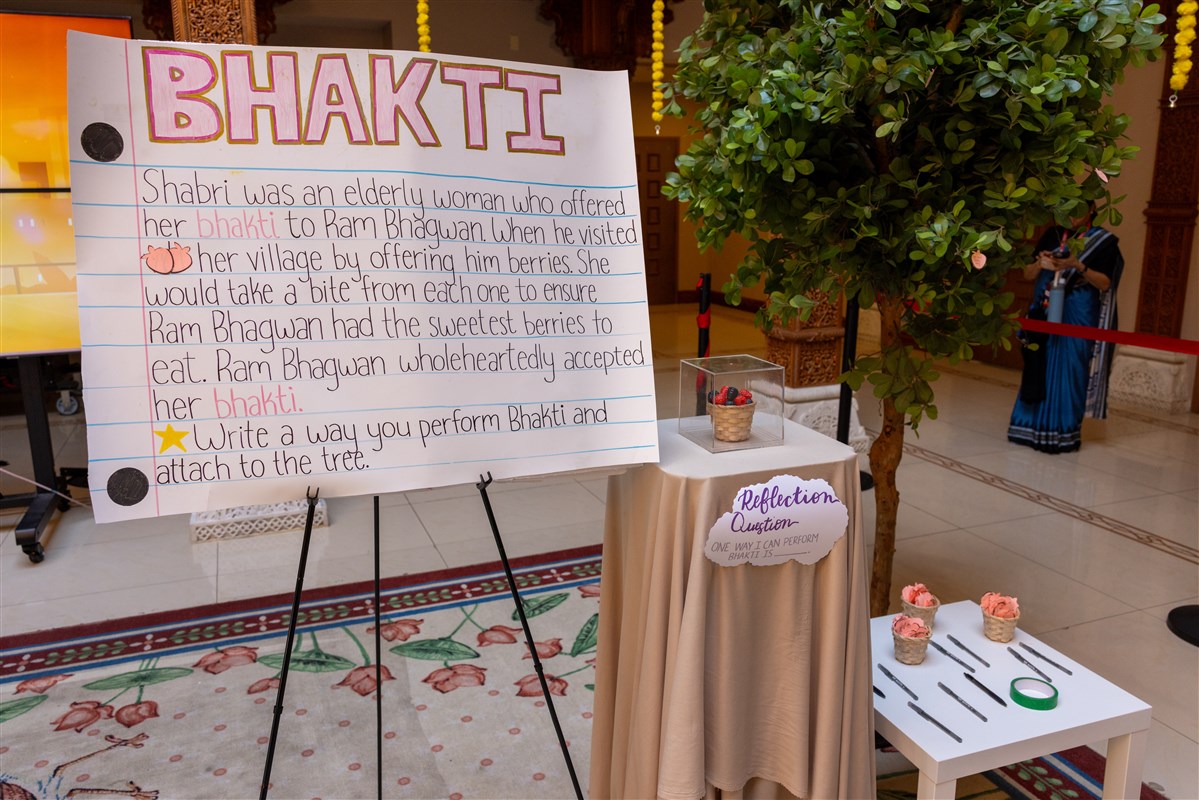 BHAKTI
Shabri was an elderly woman who offered
her bhakti to Ram Bhagwan. When he visited
her village by offering him berries. She
would take a bite from each one to ensure
Ram Bhagwan had the sweetest berries to
eat. Ram Bhagwan wholeheartedly accepted
her bhakti.
Write a way you perform Bhakti and
attach to the tree.
Reflection
Question
ONE WAY I CAN PERFORM
BHAKTI IS ______.